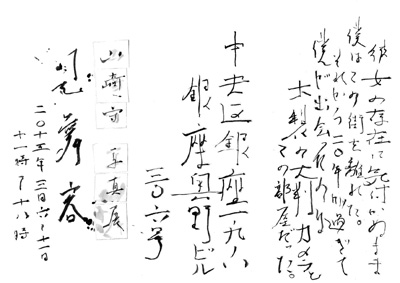 彼女の存在に気付かぬまま
僕はこの街を離れた。
それから二〇年が過ぎて
僕が出会ったのは
木製の大判カメラと
その部屋だった。
中央区銀座一-九-八
銀座奥野ビル
三〇六号
山崎 写真展
夢
二〇十五年三月六-十一日
十一時-十八時